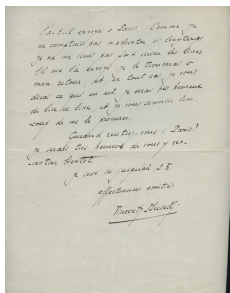 l'a-t-il envoyé à Paris. Comme je
ne comptais pas m'absenter si longtemps,
je ne me suis pas fait suivre les livres
S'il me l'a envoyé, je le trouverai à
mon retour, et en tout cas, je vous
dirai ce qui en est. Je serai très heureux
de lire ce livre et je vous remercie beau-
coup de me le procurer.
Quand rentrez-vous à Paris?
Je serais très heureux de vous y ren-
contrer bientôt.
Je suis ici jusqu'au 25.
affectueuses amitiés